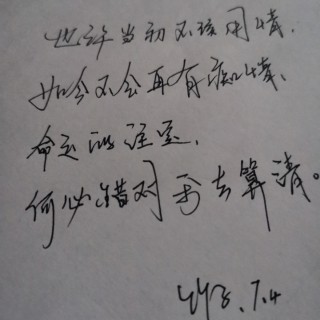 也许当初不该用情,
如今不会再有痴情、
命运的注定,
何必错对于去算清。
7.4